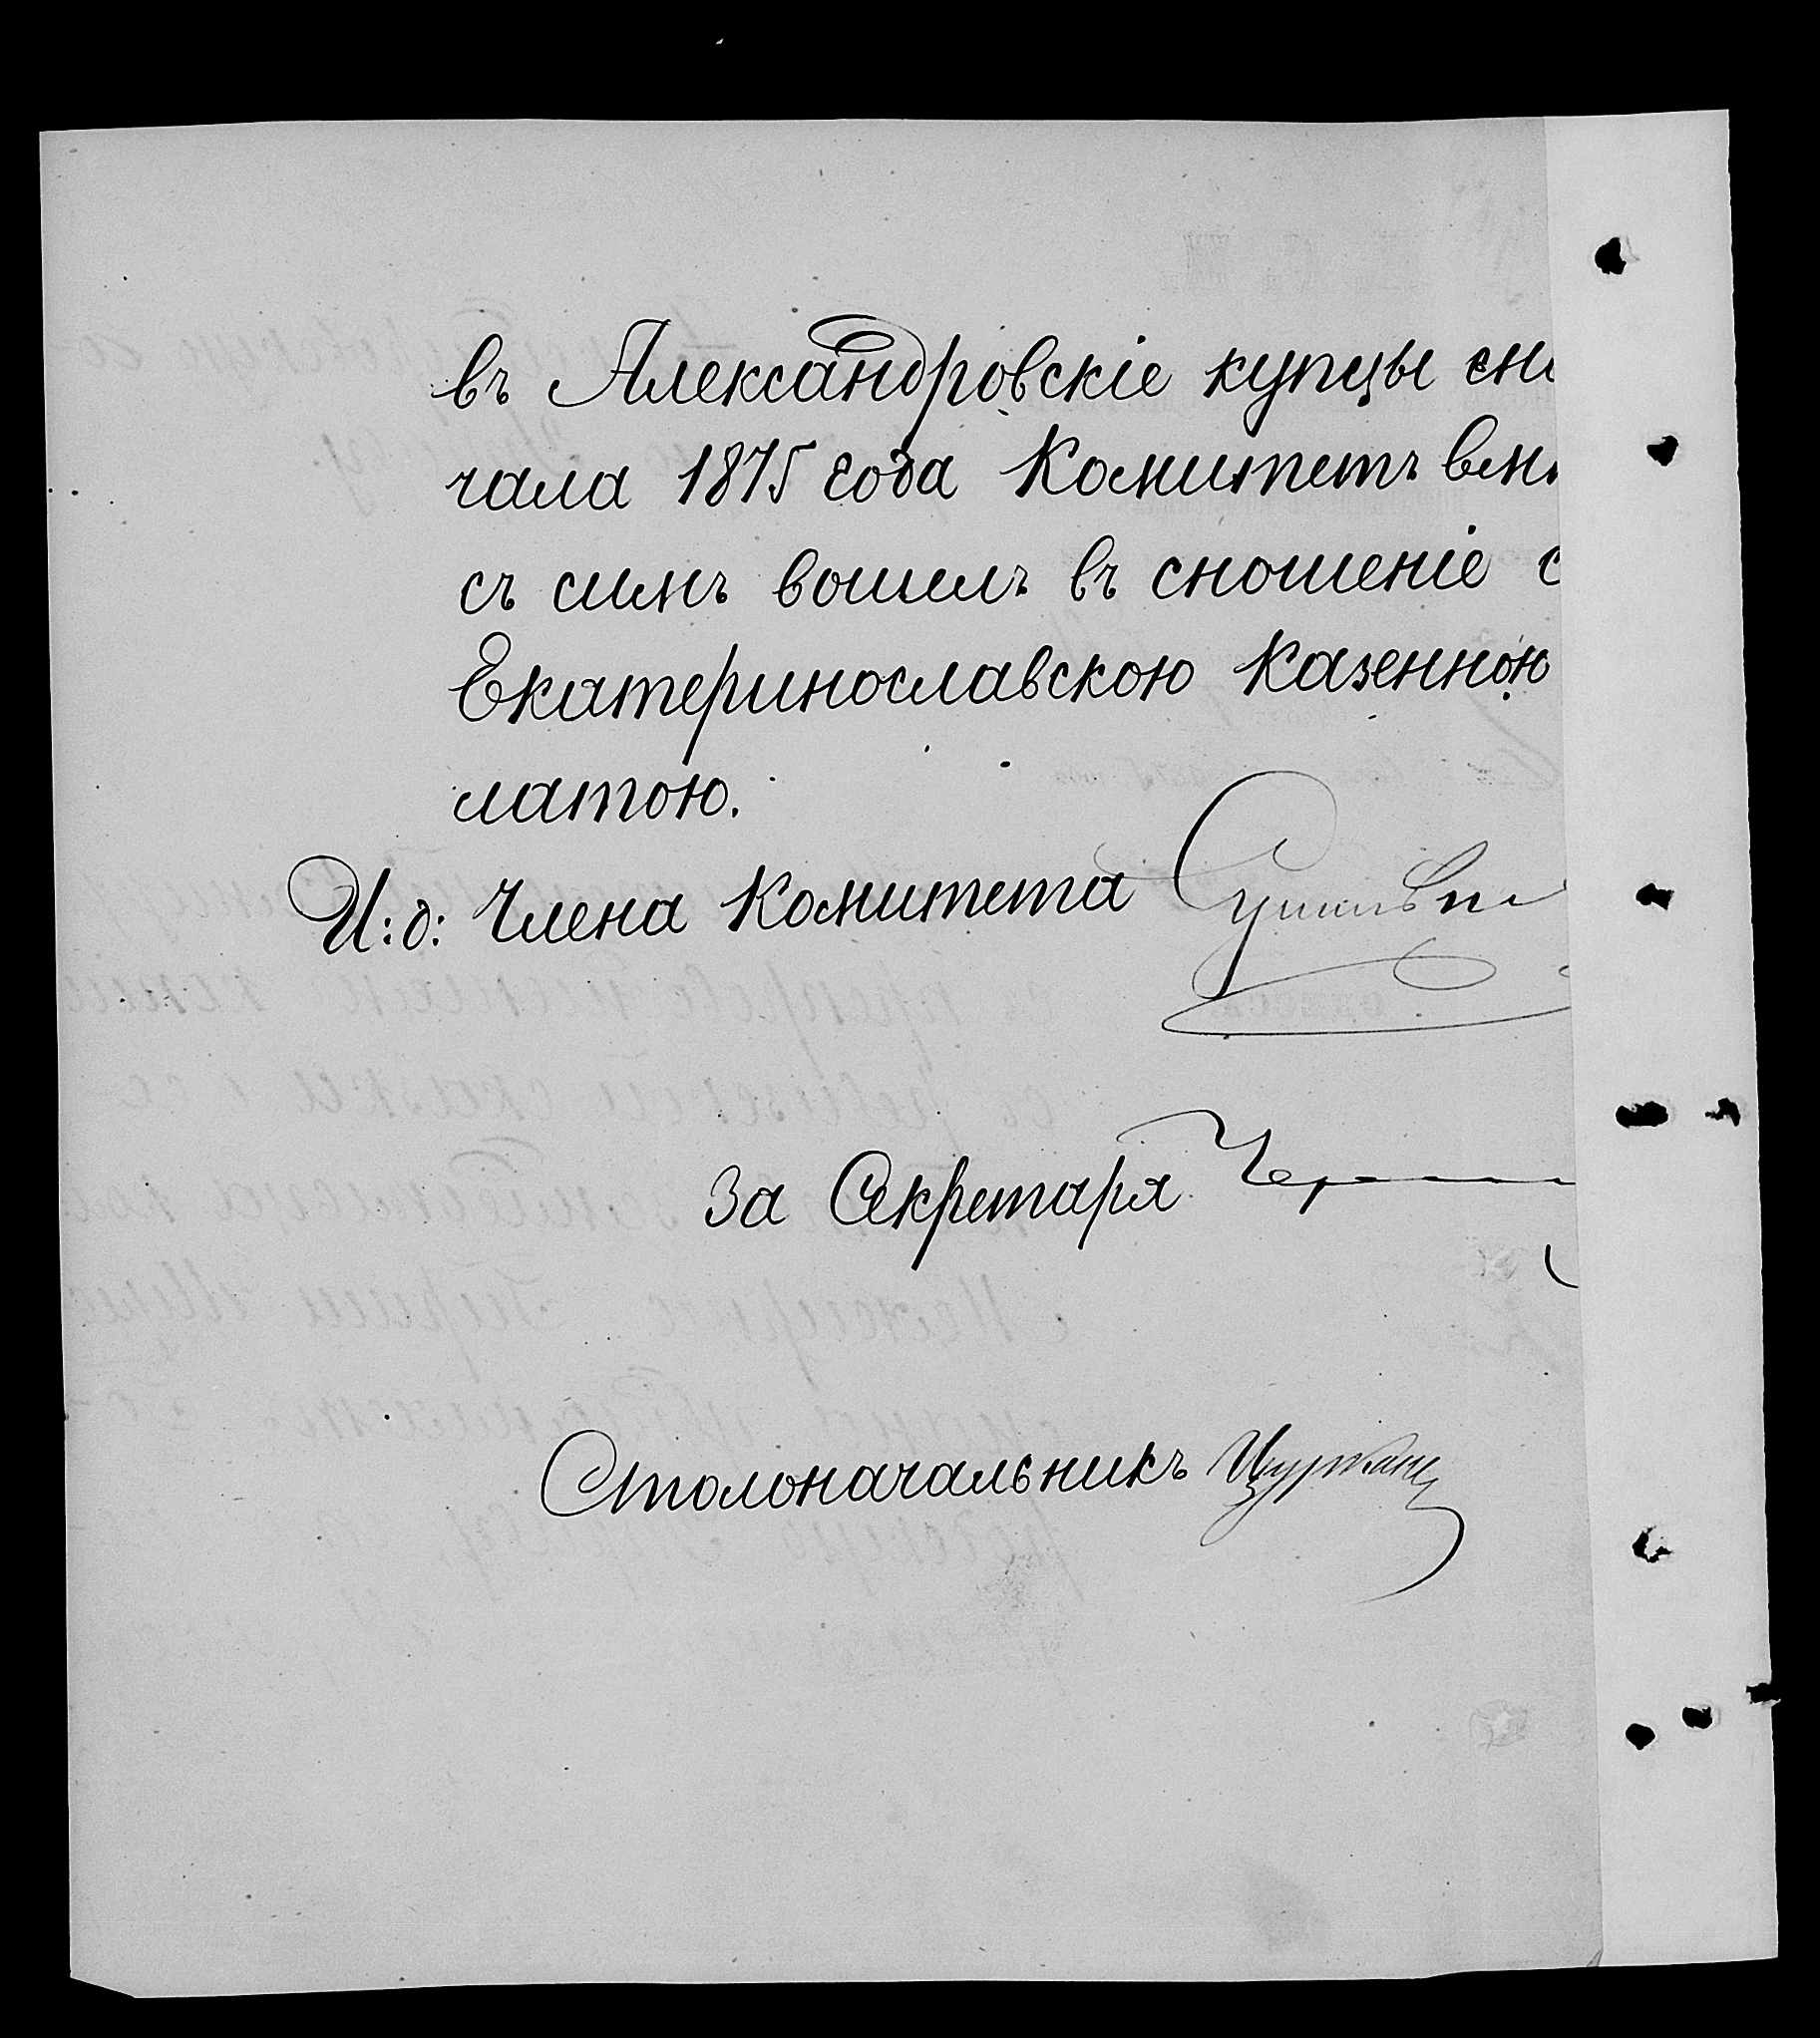 въ Александровскіе купцы сна
чала 1875 года Комитетъ вм
съ симъ вошелъ въ сношеніе с
Екатеринославскою Казенною
латою.
И: д: Члена Комитета
За Секретаря
Столоначальникъ